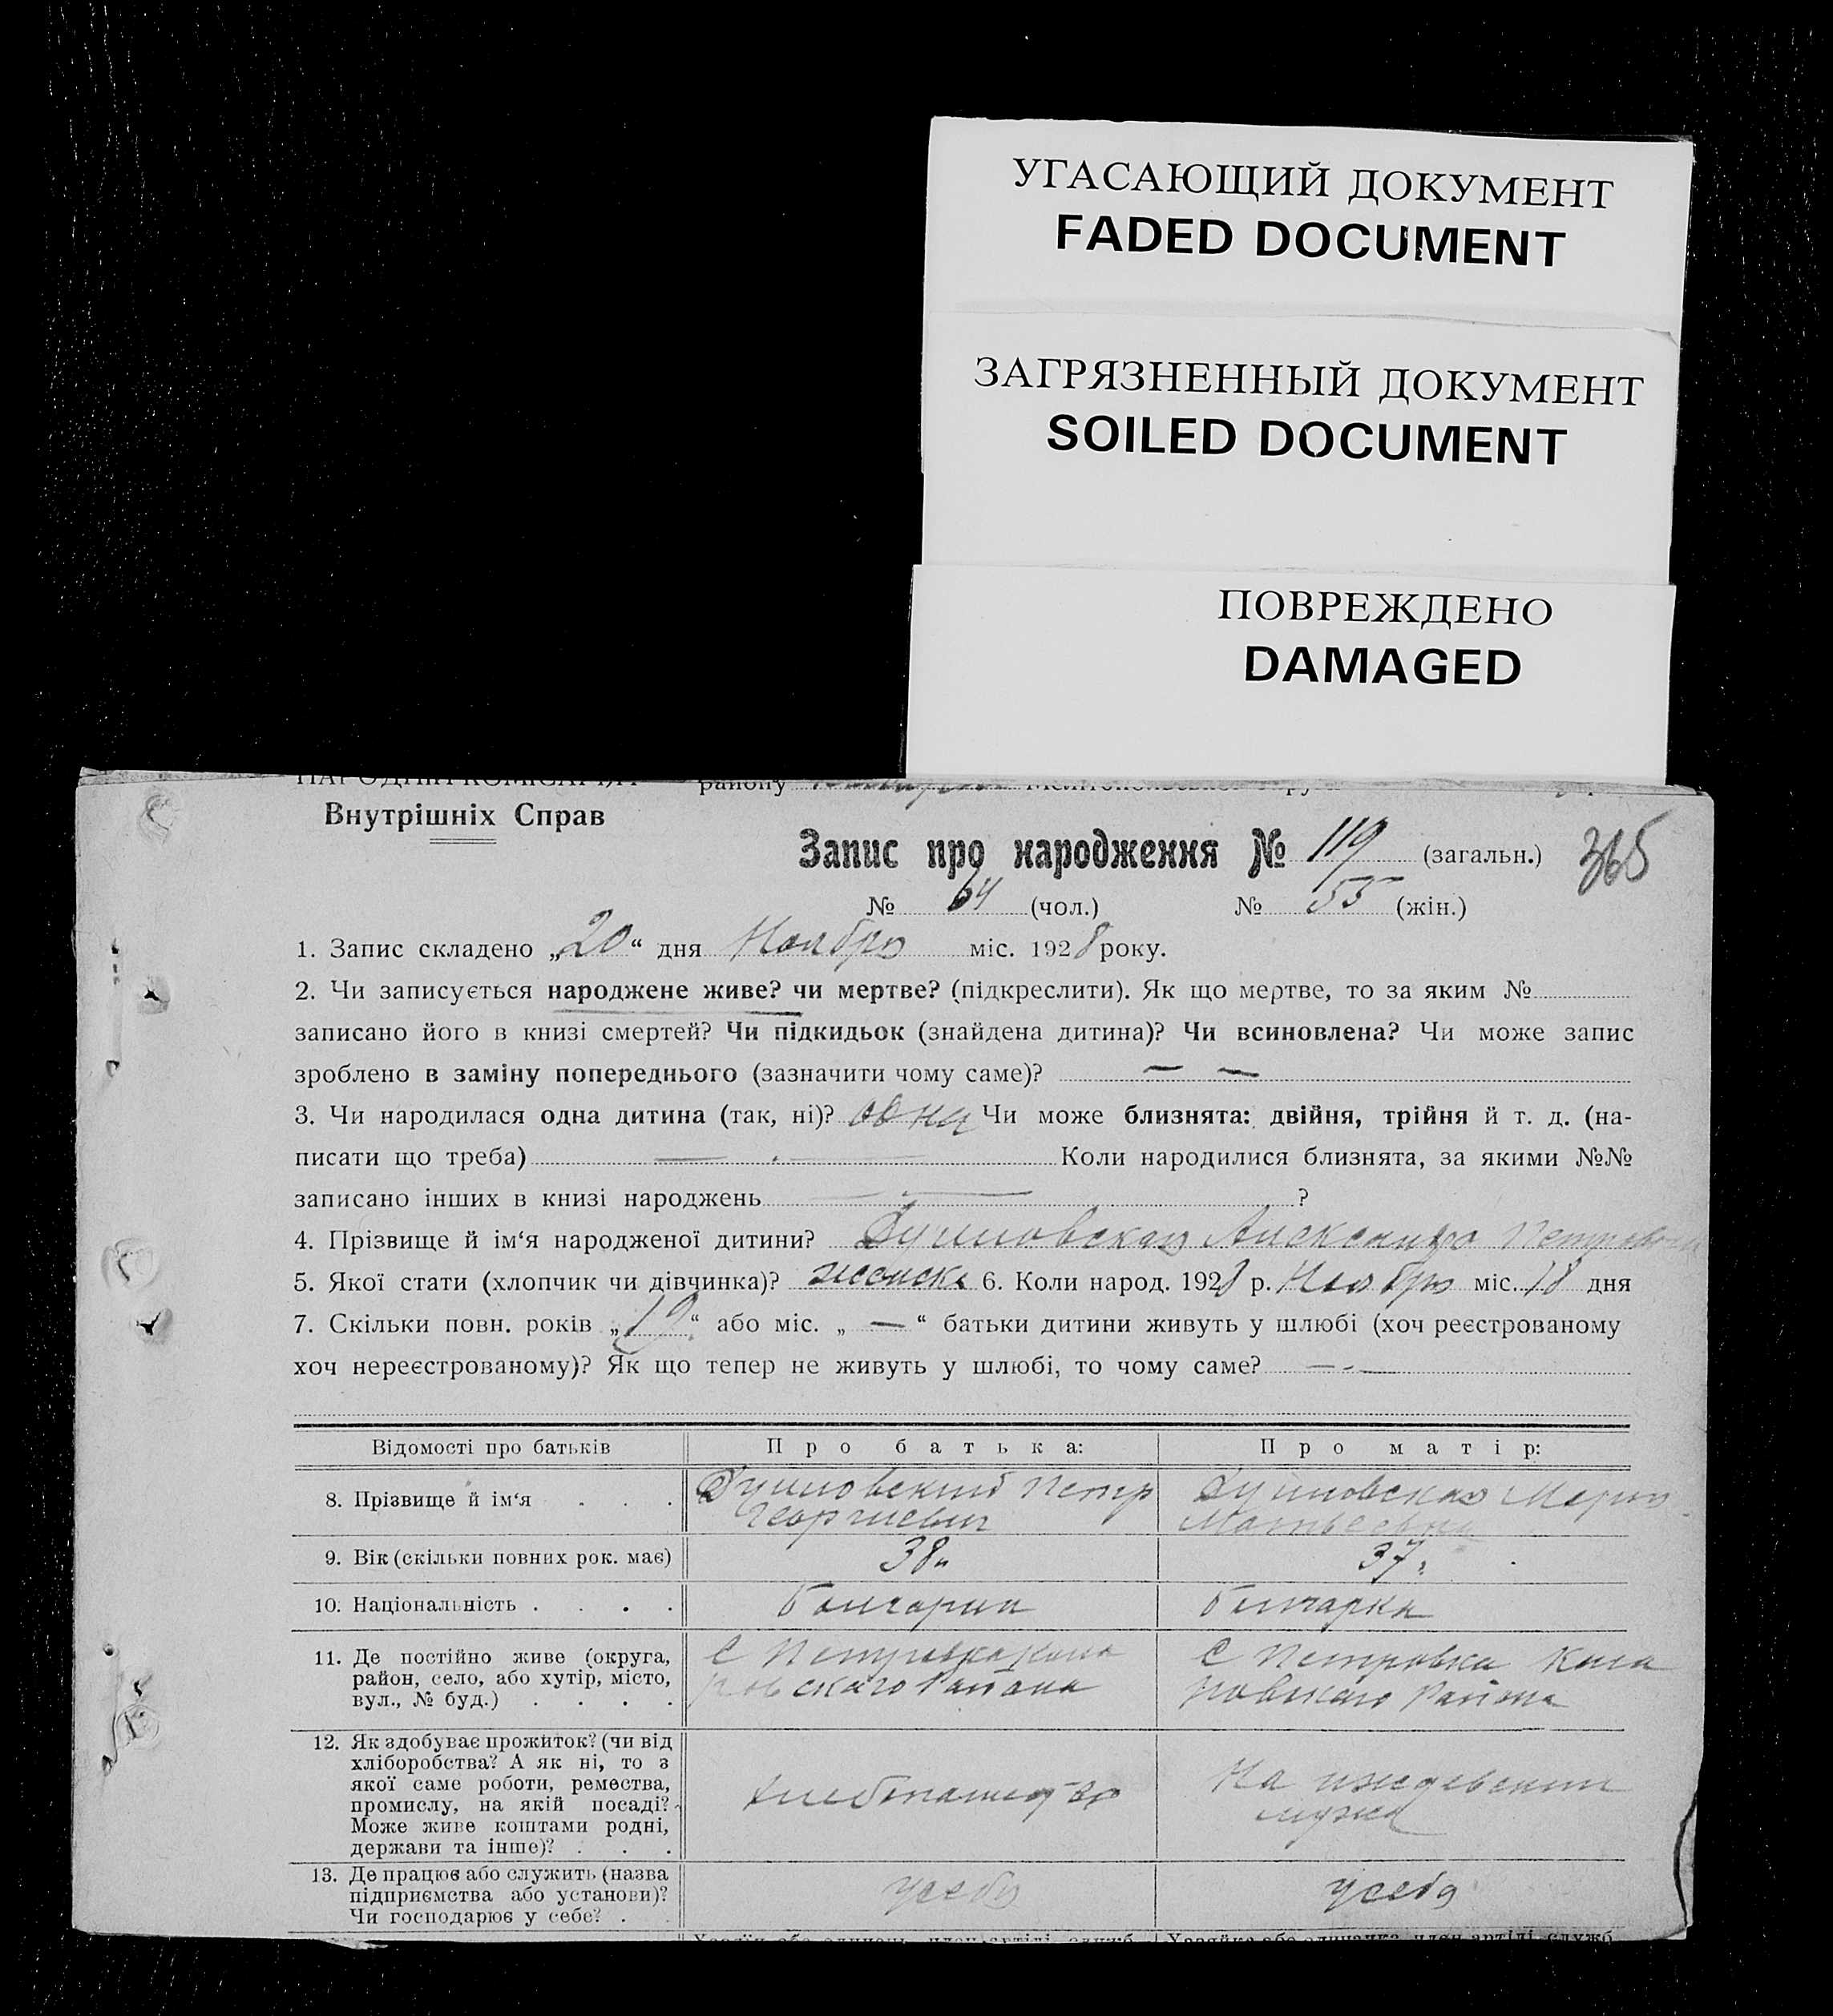 УГАСАЮЩИЙ ДОКУМЕНТ
FADED DOCUMENT
ЗАГРЯЗНЕННЫЙ ДОКУМЕНТ
SOILED DOCUMENT
ПОВРЕЖДЕНО
DAMAGED
району
Внутрішніх Справ
Запис про народження № 119 (загальн.) 365
№ 64 (чол.) № 55 (жін.)
1. Запис складено „20“ дня Ноября міс. 1928 року.
2. Чи записується народжене живе? чи мертве? (підкреслити). Як що мертве, то за яким №
записано його в книзі смертей? Чи підкидьок (знайдена дитина)? Чи всиновлена? Чи може запис
зроблено в заміну попереднього (зазначити чому саме)? — —
3. Чи народилася одна дитина (так, ні)? одна Чи може близнята: двійня, трійня й т. д. (на-
писати що треба) — — Коли народилися близнята, за якими №№
записано інших в книзі народжень — — ?
4. Прізвище й ім‘я народженої дитини? Александра Петровна
5. Якої стати (хлопчик чи дівчинка)? женск. 6. Коли народ. 1928 р. Ноября міс. 18 дня
7. Скільки повн. років „19“ або міс. „ — “ батьки дитини живуть у шлюбі (хоч реєстрованому
хоч нереєстрованому)? Як що тепер не живуть у шлюбі, то чому саме? — —
Відомості про батьків Про батька: Про матір:
8. Прізвище й ім‘я . . . Петр Мария
Георгиевич Матвеевна
9. Вік (скільки повних рок. має) 38 37
10. Національність . . . . Болгарин Болгарка
11. Де постійно живе (округа, С Петровка С Петровка
район, село, або хутір, місто, ровскаго Района ровскаго Района
вул., № буд.) . . . .
12. Як здобуває прожиток? (чи від
хліборобства? А як ні, то з
якої саме роботи, ремества, На иждевении
промислу, на якій посаді? хлебопашество мужа
Може живе коштами родні,
держави та інше)? . . .
13. Де працює або служить (назва
підприємства або установи)? у себя у себя
Чи господарює у себе? . .